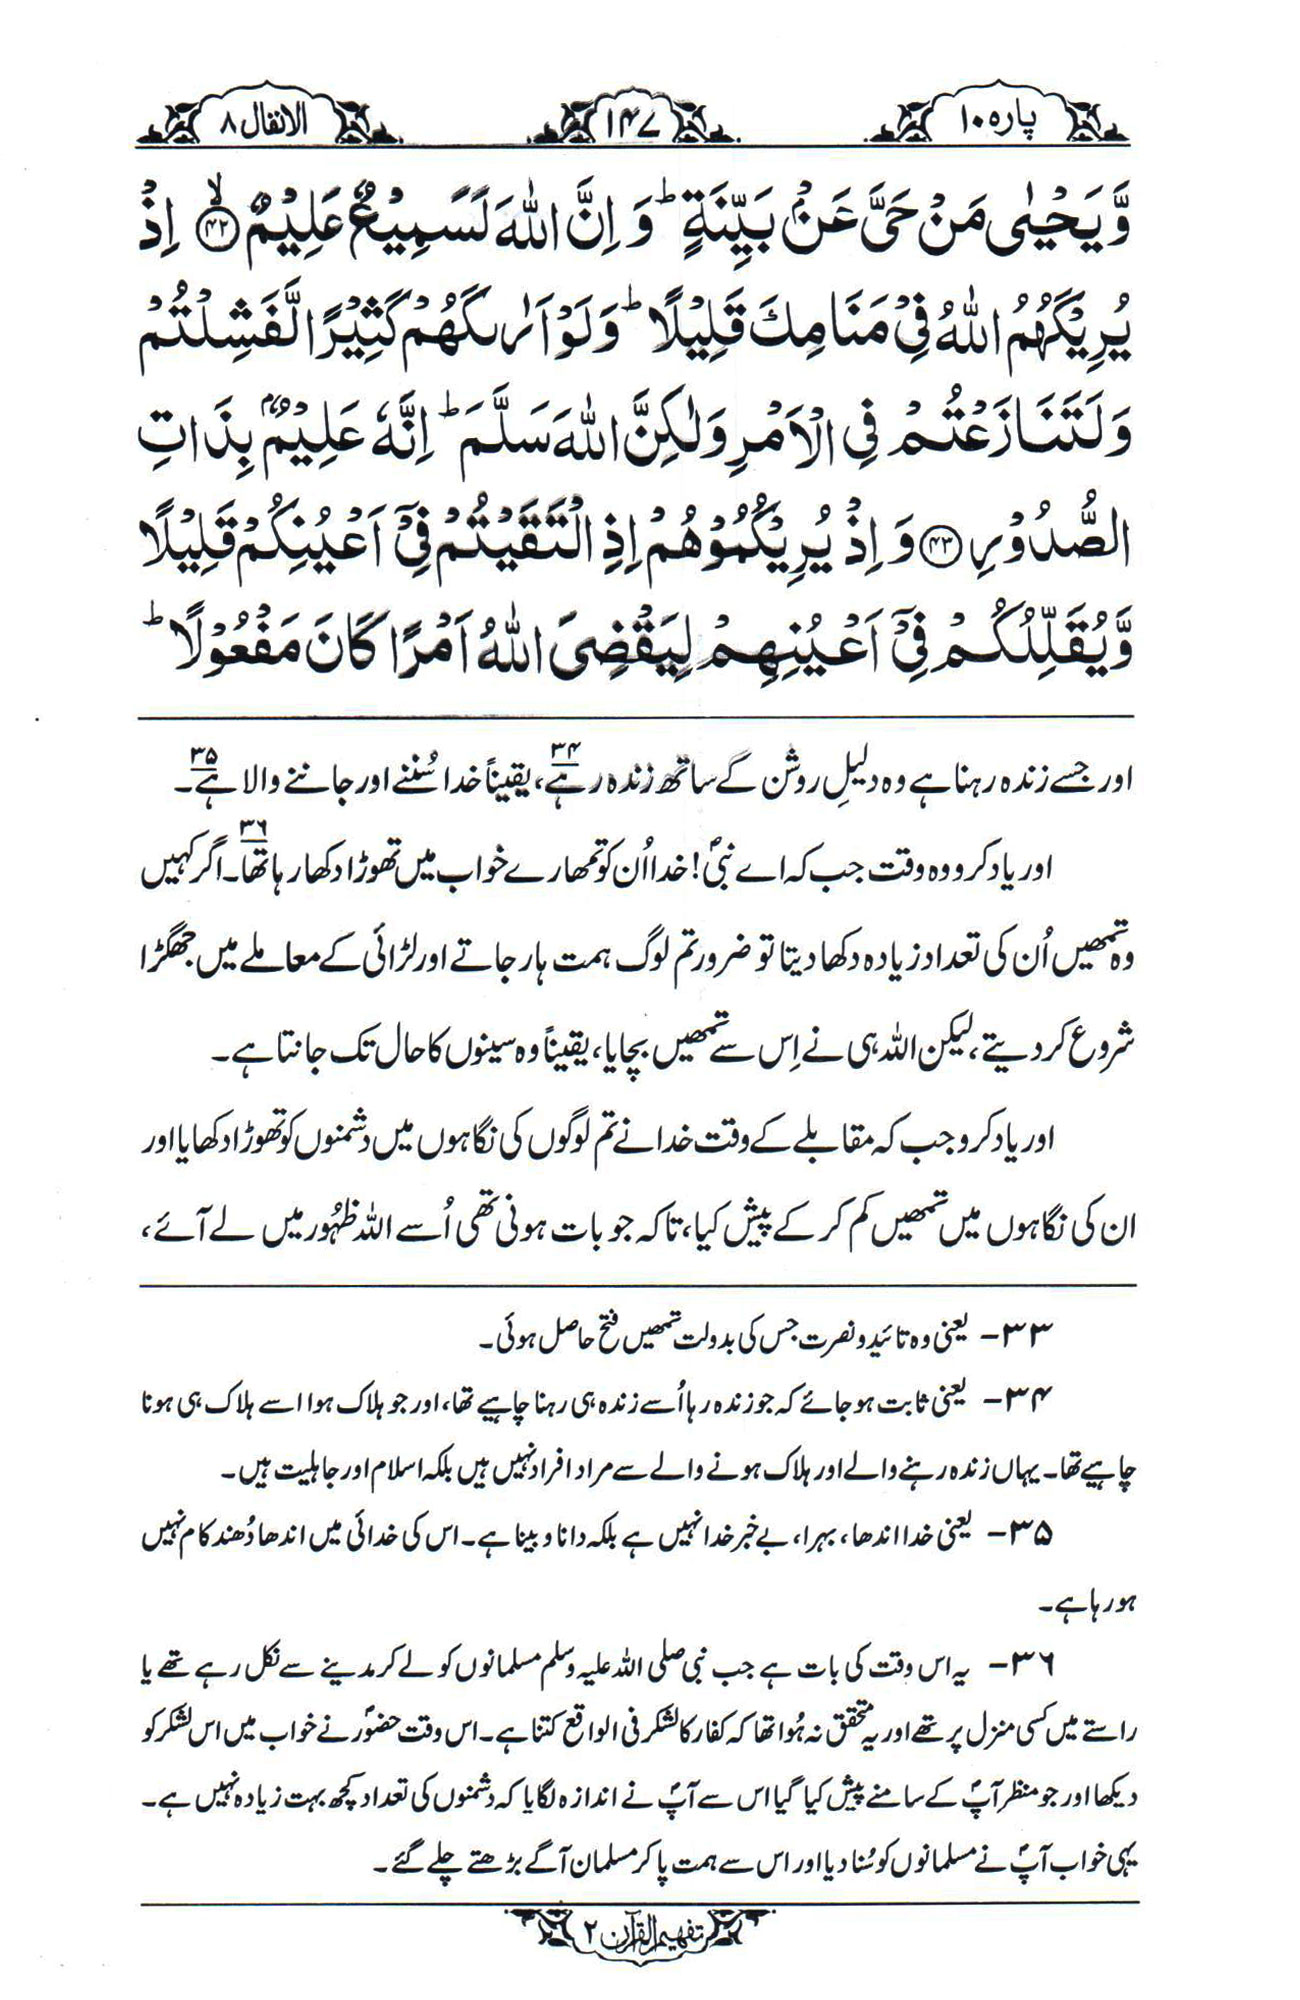 پارہ ۱۰
۱۴۷
الانفال ۸
وَّيَحْيٰى مَنْ حَيَّ عَنْۢ بَيِّنَةٍ ؕ وَ اِنَّ اللّٰهَ لَسَمِيْعٌ عَلِيْمٌ ۙ‏﴿۴۲﴾ اِذْ
يُرِيْكَهُمُ اللّٰهُ فِيْ مَنَامِكَ قَلِيْلًا ؕ وَ لَوْ اَرٰىكَهُمْ كَثِيْرًا لَّفَشِلْتُمْ
وَ لَتَنَازَعْتُمْ فِي الْاَمْرِ وَ لٰكِنَّ اللّٰهَ سَلَّمَ ؕ اِنَّهٗ عَلِيْمٌۢ بِذَاتِ
الصُّدُوْرِ ﴿۴۳﴾ وَ اِذْ يُرِيْكُمُوْهُمْ اِذِ الْتَقَيْتُمْ فِيْۤ اَعْيُنِكُمْ قَلِيْلًا
وَّ يُقَلِّلُكُمْ فِيْۤ اَعْيُنِهِمْ لِيَقْضِيَ اللّٰهُ اَمْرًا كَانَ مَفْعُوْلًا ؕ
اور جسے زندہ رہنا ہے وہ دلیلِ روشن کے ساتھ زندہ رہے۳۴، یقیناً خدا سُننے اور جاننے والا ہے۳۵۔
اور یاد کرو وہ وقت جب کہ اے نبیؐ! خدا اُن کو تمھارے خواب میں تھوڑا دکھا رہا تھا۳۶۔ اگر کہیں
وہ تمھیں اُن کی تعداد زیادہ دکھا دیتا تو ضرور تم لوگ ہمت ہار جاتے اور لڑائی کے معاملے میں جھگڑا
شروع کر دیتے، لیکن اللہ ہی نے اِس سے تمھیں بچایا، یقیناً وہ سینوں کا حال تک جانتا ہے۔
اور یاد کرو جب کہ مقابلے کے وقت خدا نے تم لوگوں کی نگاہوں میں دشمنوں کو تھوڑا دکھایا اور
ان کی نگاہوں میں تمھیں کم کر کے پیش کیا، تاکہ جو بات ہونی تھی اُسے اللہ ظہُور میں لے آئے،
۳۳- یعنی وہ تائید و نصرت جس کی بدولت تمھیں فتح حاصل ہوئی۔
۳۴- یعنی ثابت ہو جائے کہ جو زندہ رہا اُسے زندہ ہی رہنا چاہیے تھا، اور جو ہلاک ہوا اسے ہلاک ہی ہونا
چاہیے تھا۔ یہاں زندہ رہنے والے اور ہلاک ہونے والے سے مراد افراد نہیں ہیں بلکہ اسلام اور جاہلیت ہیں۔
۳۵- یعنی خدا اندھا، بہرا، بے خبر خدا نہیں ہے بلکہ دانا و بینا ہے۔ اس کی خدائی میں اندھا دُھند کام نہیں
ہو رہا ہے۔
۳۶- یہ اس وقت کی بات ہے جب نبی صلی اللہ علیہ وسلم مسلمانوں کو لے کر مدینے سے نکل رہے تھے یا
راستے میں کسی منزل پر تھے اور یہ متحقق نہ ہُوا تھا کہ کفار کا لشکر فی الواقع کتنا ہے۔ اس وقت حضورؐ نے خواب میں اس لشکر کو
دیکھا اور جو منظر آپؐ کے سامنے پیش کیا گیا اس سے آپؐ نے اندازہ لگایا کہ دشمنوں کی تعداد کچھ بہت زیادہ نہیں ہے۔
یہی خواب آپؐ نے مسلمانوں کو سُنا دیا اور اس سے ہمت پا کر مسلمان آگے بڑھتے چلے گئے۔
تفہیم القرآن ۲